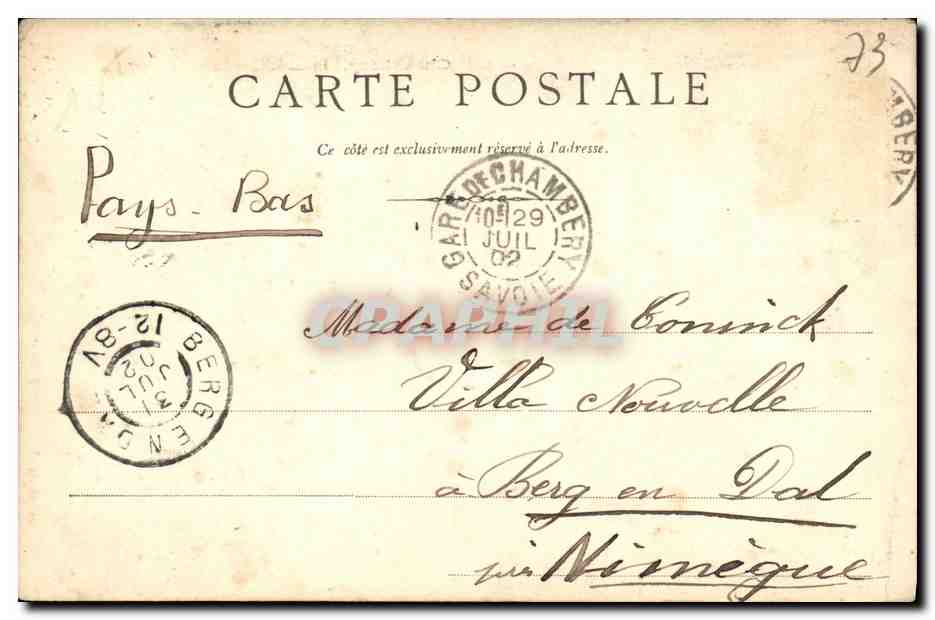 73
CARTE POSTALE
Ce côté est exclusivement réservé à l'adresse.
Pays-Bas
GARE DE CHAMBERY
29
JUIL
02
SAVOIE
MBERY
CPAPHIL
Madame de Coninck
Villa Nouvelle
à Berg en Dal
près Nimègue
BERG EN DAL
31
JUL
02
12-8V